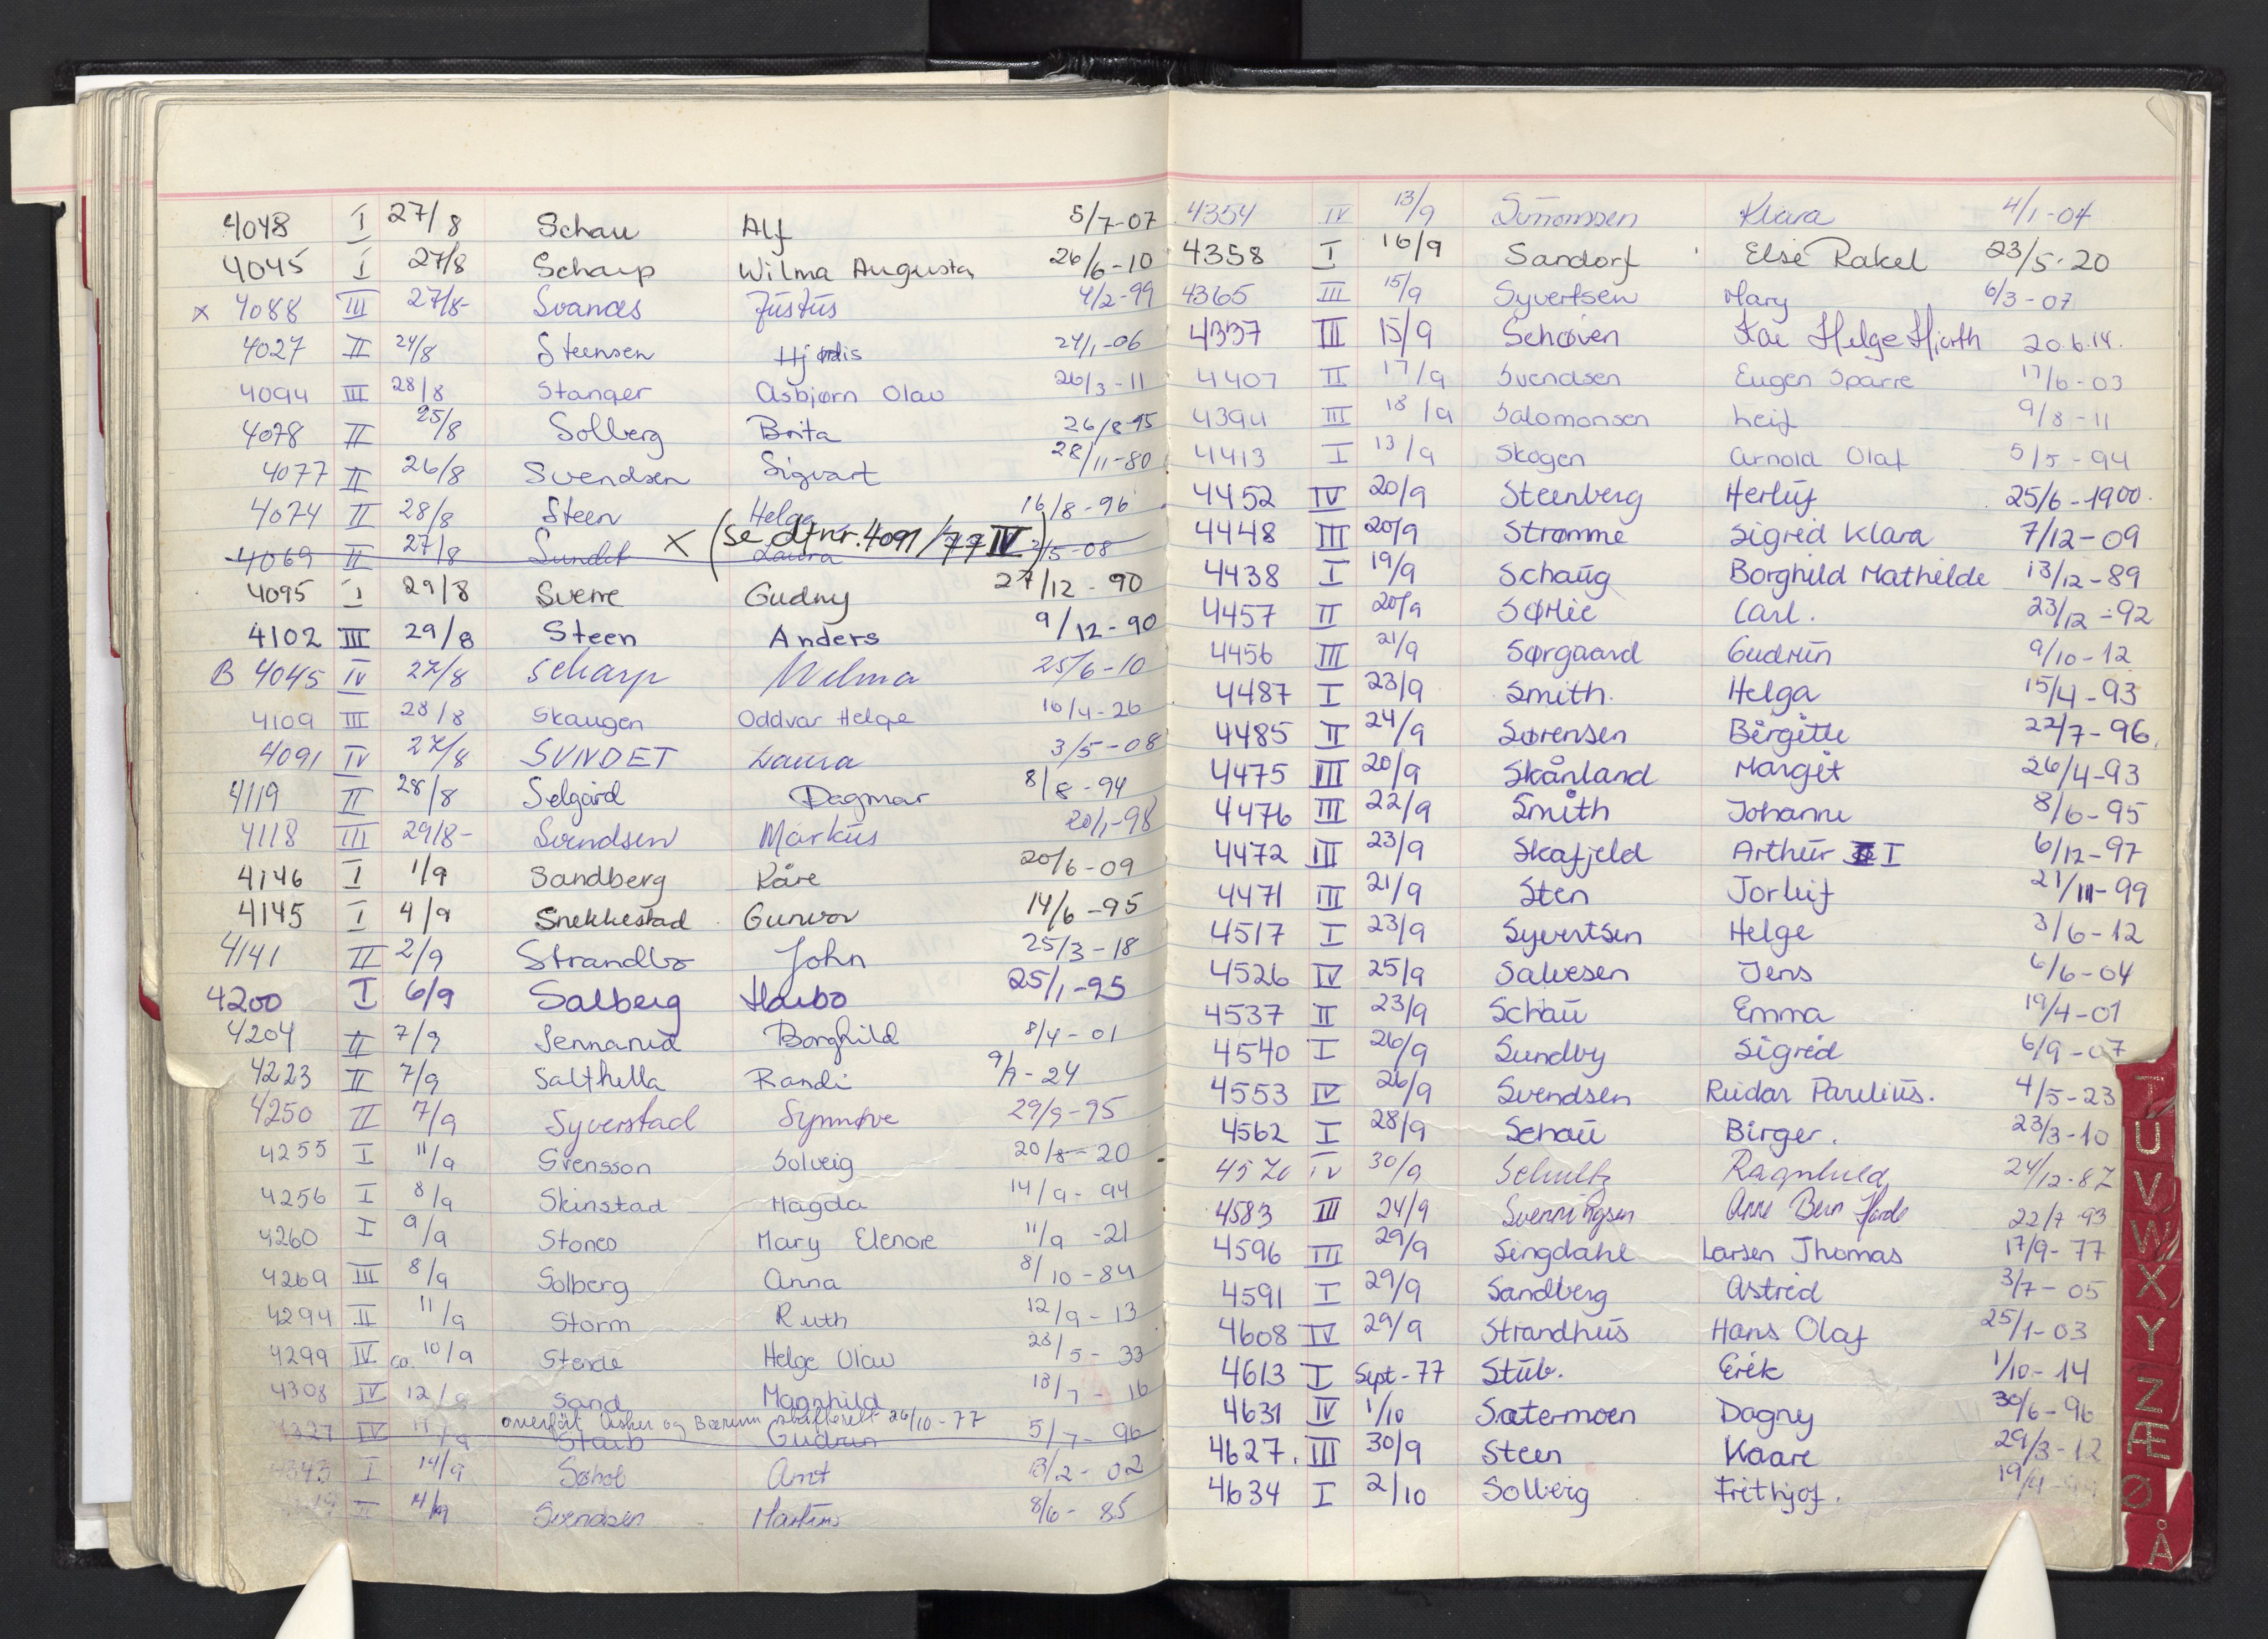 4048 I 27/8 Schau Alf 5/7-07
4045 I 27/8 Scharp Wilma Augusta 26/6-10
x 4088 III 27/8- Svanæs Justus 4/2-99
4027 II 24/8 Steensen Hjørdis 24/1-06
4094 III 28/8 Stanger Asbjørn Olav 26/3-11
4078 II 25/8 Solberg Brita 26/8-95
4077 II 26/8 Svendsen Sigvart 28/11-80
4074 II 28/8 Steen Helga 16/8-96
4069 II 27/8 Sundet x (se dfnr. 4091/77 IV) Laura 3/5-08
4095 I 29/8 Sverre Gudny 27/12-90
4102 III 29/8 Steen Anders 9/12-90
B 4045 IV 27/8 Scharp Wilma 25/6-10
4109 III 28/8 Skaugen Oddvar Helge 16/4-26
4091 IV 27/8 SUNDET Laura 3/5-08
4119 II 28/8 Selgård Dagmar 8/8-94
4118 III 29/8- Svendsen Markus 20/1-98
4146 I 1/9 Sandberg Kåre 20/6-09
4145 I 4/9 Snekkestad Gunvor 14/6-95
4141 II 2/9 Strandbo John 25/3-18
4200 I 6/9 Salberg Harbo 25/1-95
4204 II 7/9 Borghild 8/4-01
4223 II 7/9 Salthella Randi 9/9-24
4250 II 7/9 Syverstad Synnøve 29/9-95
4255 I 11/9 Svensson Solveig 20/8-20
4256 I 8/9 Skinstad Magda 14/9-94
4260 I 9/9 Stones Mary Elenore 11/9-21
4269 III 8/9 Solberg Anna 8/10-84
4294 II 11/9 Storm Ruth 12/9-13
4299 IV ca. 10/9 Stende Helge Olav 28/5-33
4308 IV 12/9 Sand Magnhild 13/7-16
overført Asker og Bærum skifterett 26/10-77
4327 IV 11/9 Staub Gudrun 5/7-96
4343 I 14/9 Søhol Arnt 13/2-02
II 14/9 Svendsen Martin 8/6-85
4354 IV 13/9 Simonssen Klara 4/1-04
4358 I 16/9 Sandorf Else Rakel 23/5-20
4365 III 15/9 Syvertsen Mary 6/3-07
4337 III 15/9 Schøven Kai Helge Hjorth 20.6.14.
4407 II 17/9 Svendsen Eugen Sparre 17/6-03
4394 III 18/9 Salomonsen Leif 9/8-11
4413 I 13/9 Skogen Arnold Olaf 5/5-94
4452 IV 20/9 Steenberg Herluf 25/6-1900.
4448 III 20/9 Strømme Sigrid Klara 7/12-09
4438 I 19/9 Schaug Borghild Mathilde 13/12-89
4457 II 20/9 Sørlie Carl. 23/12-92
4456 III 21/9 Sørgaard Gudrun 9/10-12
4487 I 23/9 Smith. Helga 15/4-93
4485 II 24/9 Sørensen Birgitte 22/7-96.
4475 III 20/9 Skånland Margit 26/4-93
4476 III 22/9 Smith Johanne 8/6-95
4472 III 23/9 Skafjeld Arthur I 6/12-97
4471 III 21/9 Sten Jorleif 21/11-99
4517 I 23/9 Syvertsen Helge 3/6-12
4526 IV 25/9 Salvesen Jens 6/6-04
4537 II 23/9 Schau Emma 19/4-01
4540 I 26/9 Sundby Sigrid 6/9-07
4553 IV 26/9 Svendsen Reidar Parelius. 4/5-23
4562 I 28/9 Schau Birger. 23/3-10
4570 IV 30/9 Schultz Ragnhild 24/12-87
4583 III 24/9 Svenningsen Anne 22/7-93
4596 III 29/9 Singdahl Larsen Thomas 17/9-77
4591 I 29/9 Sandberg Astrid 3/7-05
4608 IV 29/9 Strandhus Hans Olaf 25/1-03
4613 I Sept-77 Stub. Erik 1/10-14
4631 IV 1/10 Sætermoen Dagny 30/6-96
4627. III 30/9 Steen Kaare 29/3-12
4634 I 2/10 Solberg Frithjof. 19/4
T
U
V
W
X
Y
Z
Æ
Ø
Å